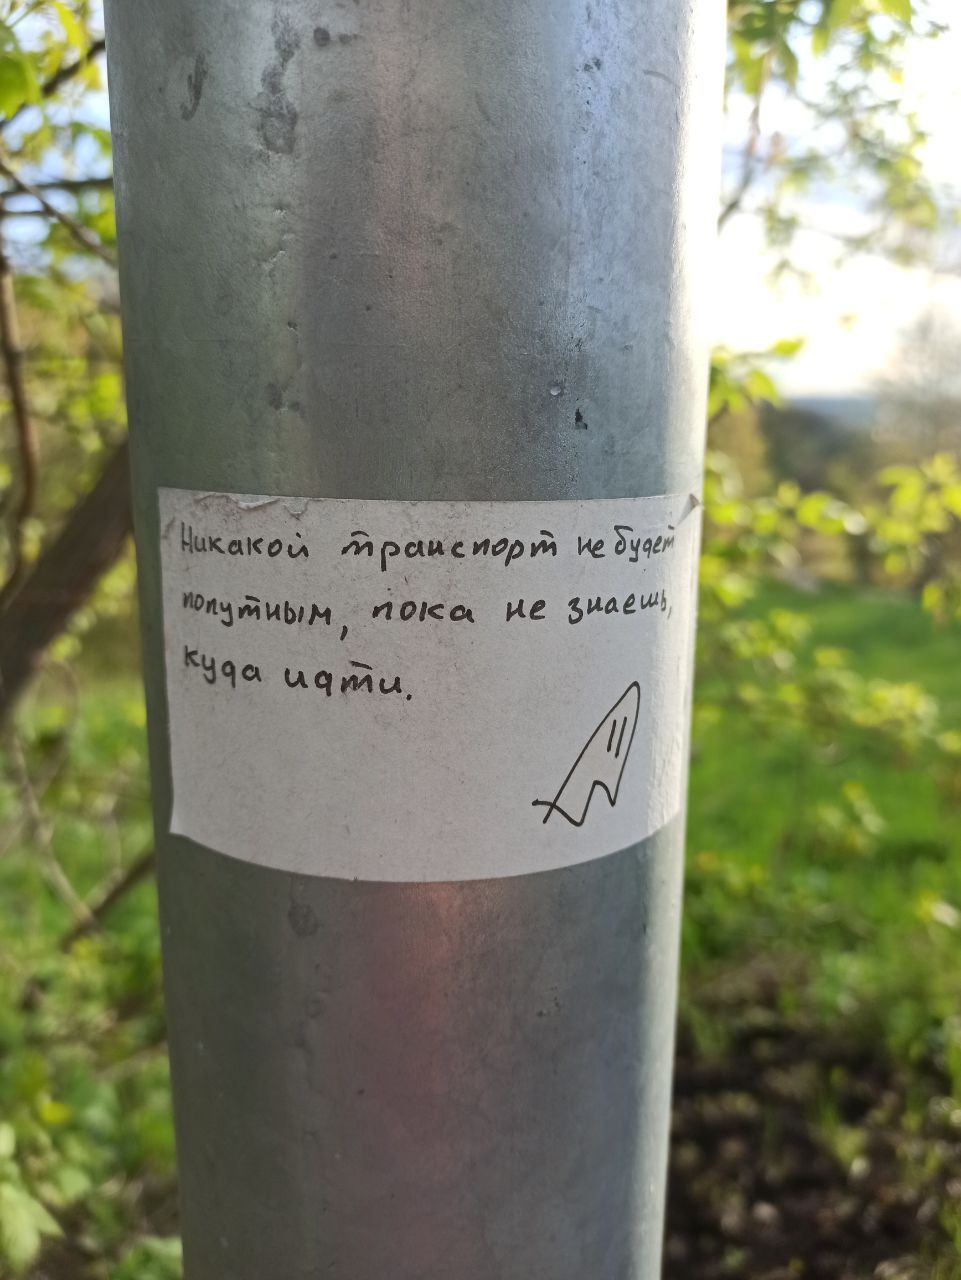 Никакой транспорт не будет
попутным, пока не знаешь,
куда идти.